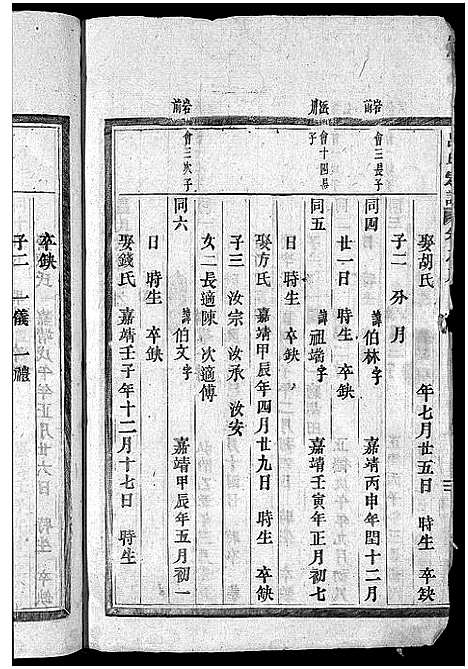 娶胡氏　年七月廿五日　時生　卒缺
子二　分　月
岩前
會三長子
同四　諱伯林字　嘉靖丙申年閏十二月
廿一日　時生　卒缺
會十四長子
同五　諱祖端字　嘉靖壬寅年正月初七
日　時生　卒缺
娶方氏　嘉靖甲辰年四月廿九日　時生　卒缺
子三　汝宗　汝承　汝安
女二　長適陳　次適傅
岩前
會三次子
同六　諱伯文字　嘉靖甲辰年五月初一
日　時生　卒缺
娶錢氏　嘉靖壬子年十二月十七日　時生
卒缺
子二　一儀　一禮